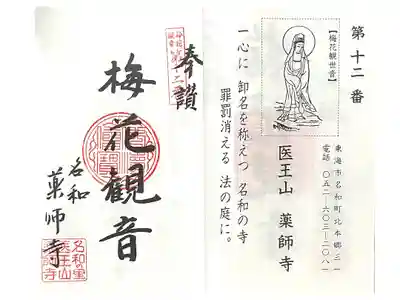 第十二番
【梅花観世音】
東海市名和町北本郷三一
電話 〇五二−六〇三−二〇八一
医王山 薬師寺
一心に 御名を称えつ 名和の寺
罪罰消える 法の庭に。
奉讃
梅花観音
名和
薬師寺
名和の里
医王山
薬師寺